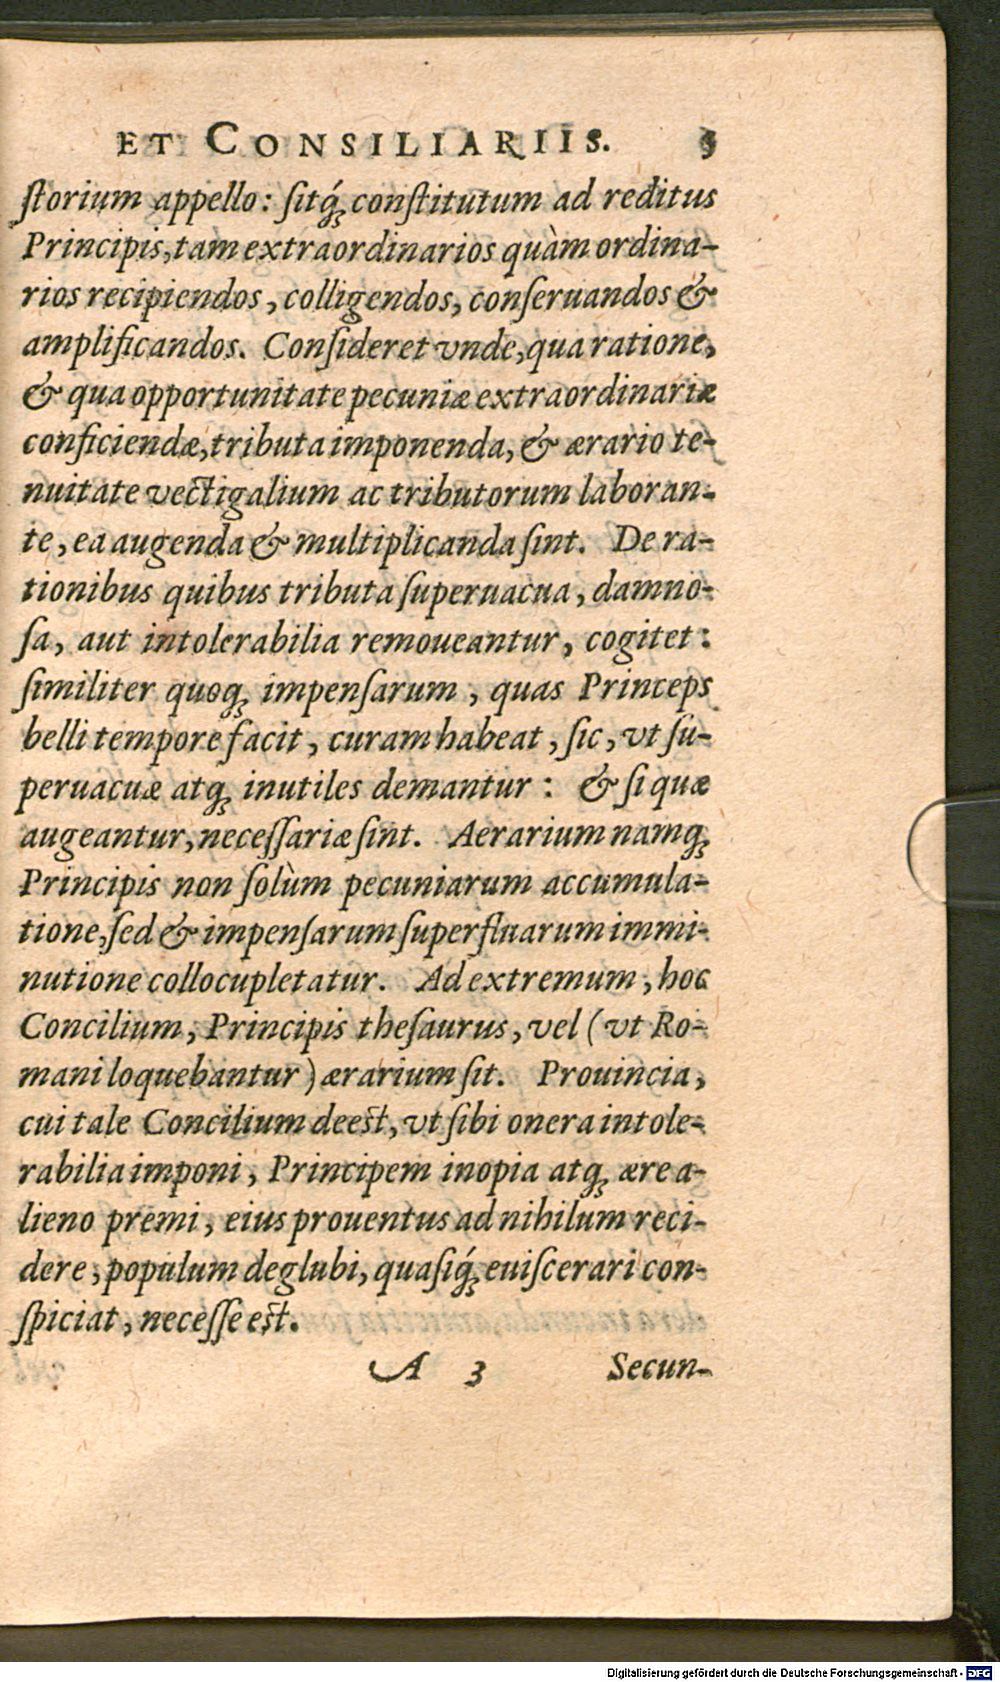 ET CONSILIARIIS. 5
ſtorium appello: ſitq́ꝫ conſtitutum ad reditus
Principis, tam extraordinarios quàm ordina-
rios recipiendos, colligendos, conſeruandos &
amplificandos. Conſideret vnde, qua ratione,
& qua opportunitate pecuniæ extraordinariæ
conficiendæ, tributa imponenda, & ærario te-
nuitate vectigalium ac tributorum laboran-
te, ea augenda & multiplicanda ſint. De ra-
tionibus quibus tributa ſuperuacua, damno-
ſa, aut intolerabilia remoueantur, cogitet:
ſimiliter quoqꝫ impenſarum, quas Princeps
belli tempore facit, curam habeat, ſic, vt ſu-
peruacuæ atqꝫ inutiles demantur: & ſi quæ
augeantur, neceſſariæ ſint. Aerarium namqꝫ
Principis non ſolùm pecuniarum accumula-
tione, ſed & impenſarum ſuperfluarum immi-
nutione collocupletatur. Ad extremum, hoc
Concilium, Principis theſaurus, vel (vt Ro-
mani loquebantur) ærarium ſit. Prouincia,
cui tale Concilium deeſt, vt ſibi onera intole-
rabilia imponi, Principem inopia atqꝫ ære a-
lieno premi, eius prouentus ad nihilum reci-
dere, populum deglubi, quaſiq́ꝫ euiſcerari con-
ſpiciat, neceſſe eſt.
A 3 Secun-
Digitalisierung gefördert durch die Deutsche Forschungsgemeinschaft - DFG